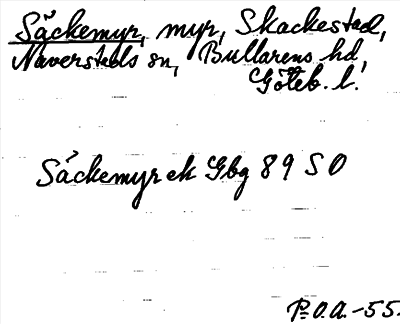 Säckemyr, myr, Skackestad,
Naverstads sn, Bullarens hd,
Göteb. l.
Säckemyr ek Gbg 89 SO
P.O.A. -55.